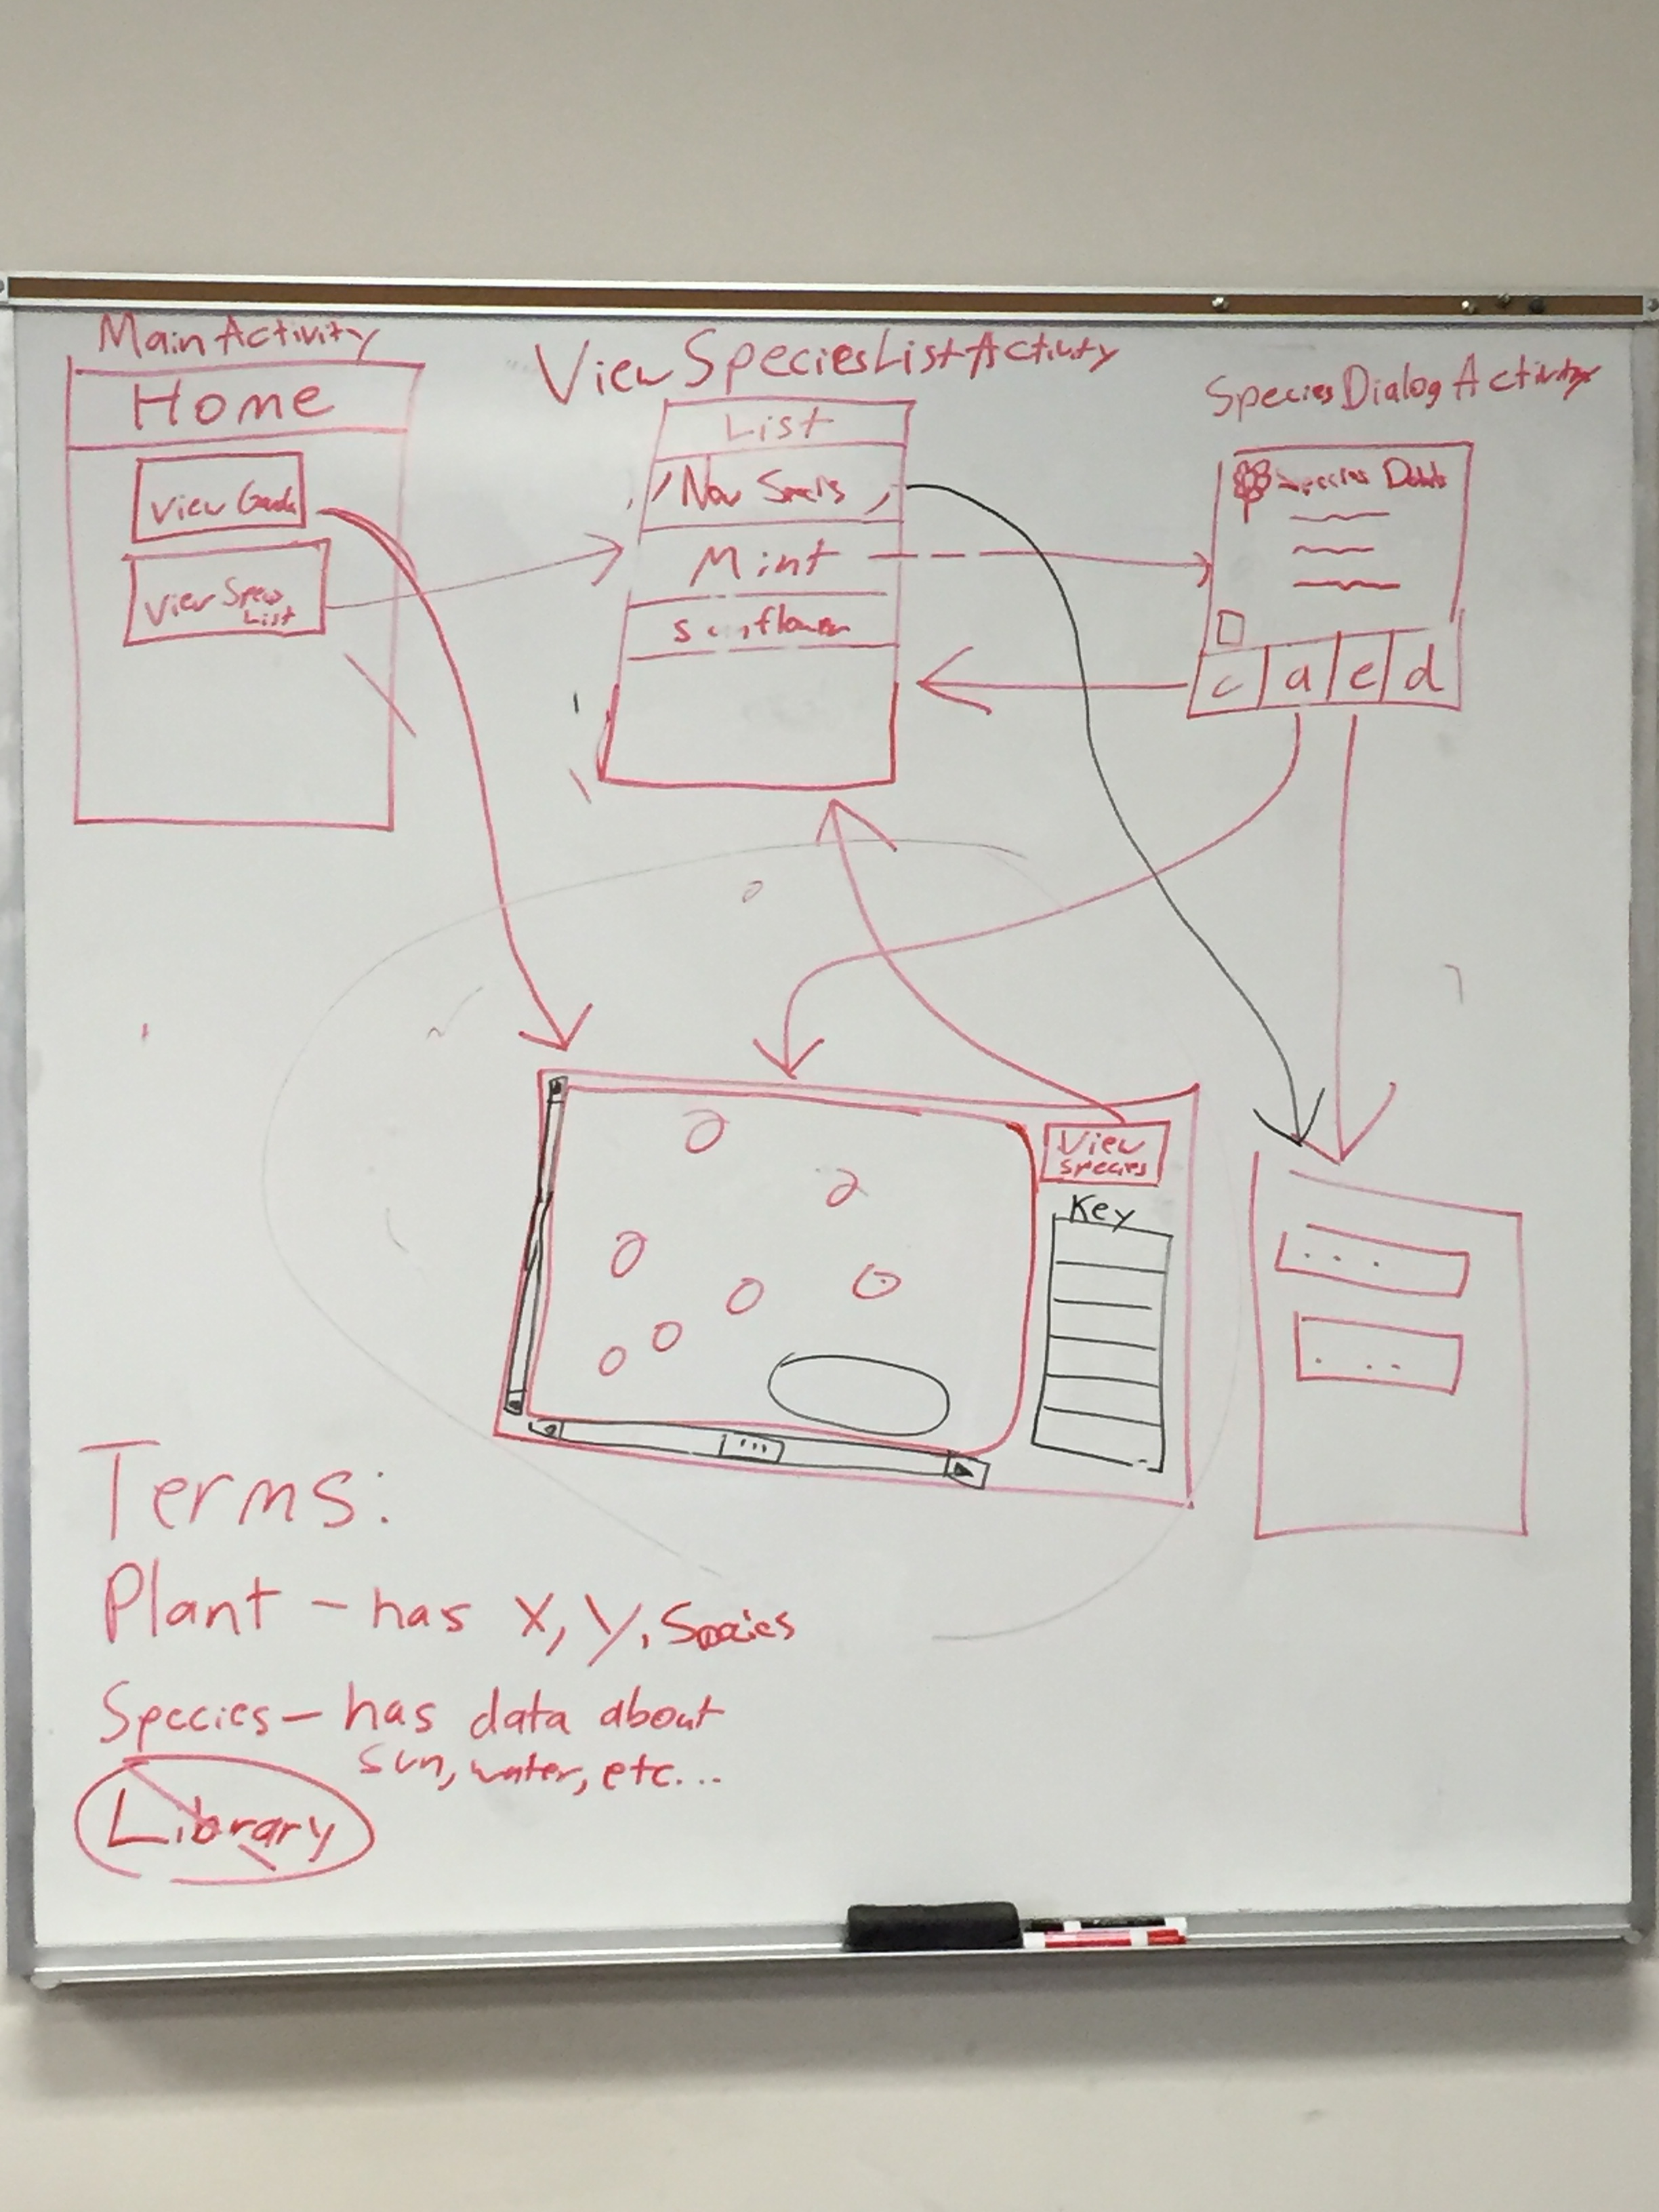 MainActivity
Home
View
View
List
ViewSpeciesListActivity
List
New
Mint
sunflower
SpeciesDialogActivity
Species
c a e d
View
Species
Key
Terms:
Plant - has X, Y, Species
Species - has data about
sun, water, etc...
Library